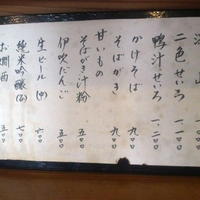 二色せいろ 一、一〇〇
鴨汁せいろ 一、二〇〇
かけそば 九〇〇
そばがき 九〇〇
甘いもの
そばがき汁粉 五〇〇
伊吹だんご 五〇〇
生ビール(中) 六〇〇
純米吟醸(冷) 七〇〇
お燗酒 五〇〇